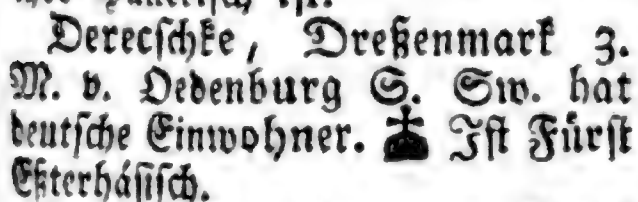 Derecſchke, Dreßenmark 3.
M. v. Oedenburg S. Sw. hat
deutſche Einwohner. Iſt Fürſt
Eßterháſiſch.